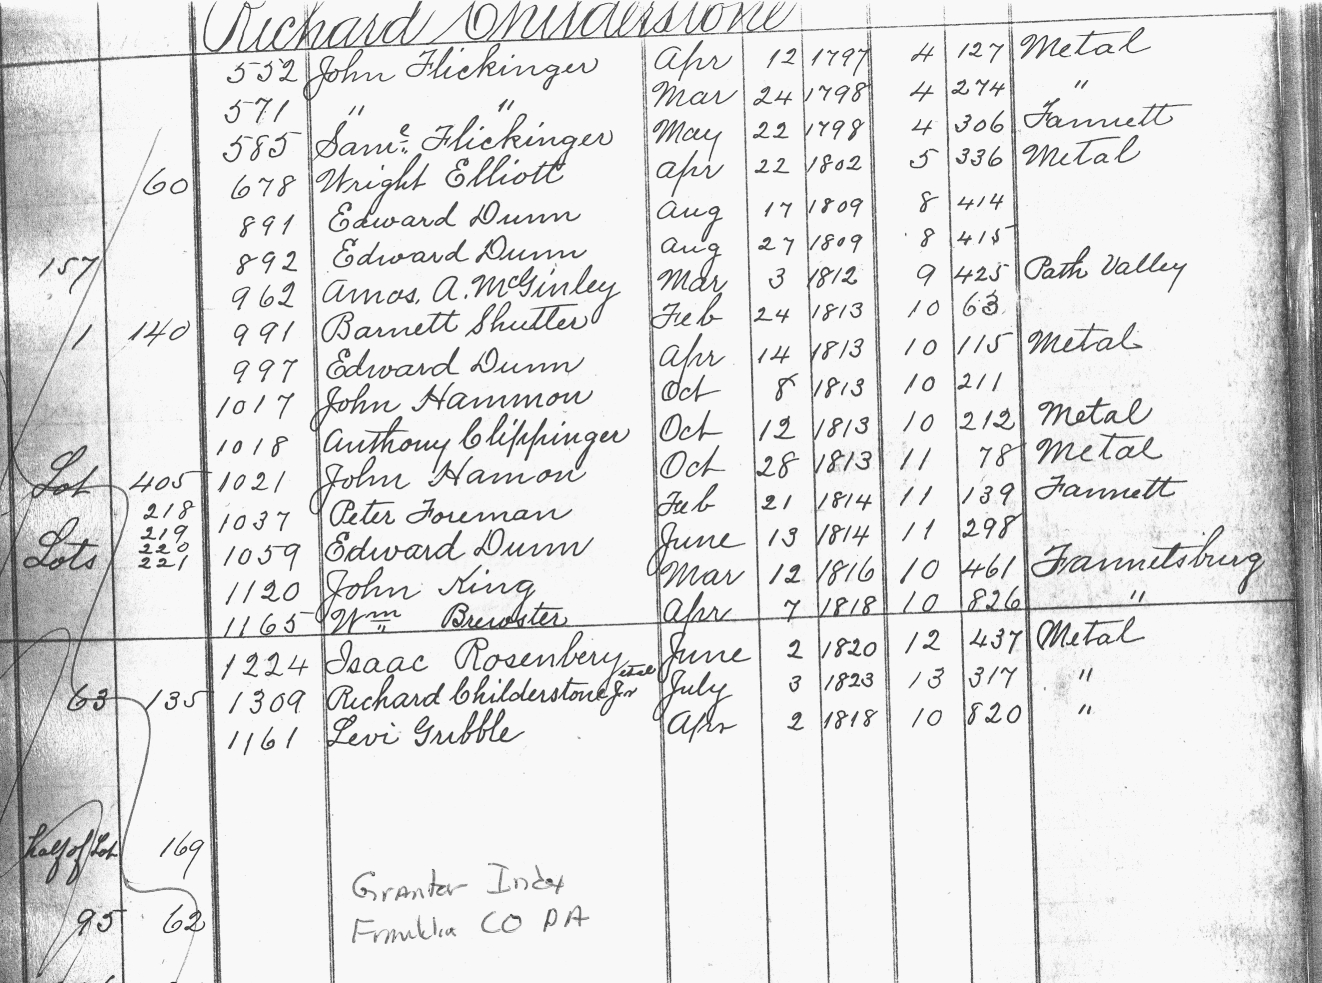 Richard Childerstone
552 John Flickinger Apr 12 1797 4 127 Metal
571 " " Mar 24 1798 4 274 "
585 Saml. Flickinger May 22 1798 4 306 Fannett
60 678 Wright Elliott Apr 22 1802 5 336 Metal
891 Edward Dunn Aug 17 1809 8 414
157 892 Edward Dunn Aug 27 1809 8 415
962 Amos. A. McGinley Mar 3 1812 9 425 Path Valley
1 140 991 Barnett Shutler Feb 24 1813 10 63
997 Edward Dunn Apr 14 1813 10 115 Metal
1017 John Hammon Oct 8 1813 10 211
1018 Anthony Clippinger Oct 12 1813 10 212 Metal
Lot 405 1021 John Hamon Oct 28 1813 11 78 Metal
218
1037 Peter Foreman Feb 21 1814 11 139 Fannett
219
220
Lots 221 1059 Edward Dunn June 13 1814 11 298
1120 John King Mar 12 1816 10 461 Fannetsburg
1165 Wm Brewster Apr 7 1818 10 826 "
1224 Isaac Rosenbery et al June 2 1820 12 437 Metal
63 135 1309 Richard Childerstone Jr July 3 1823 13 317 "
1161 Levi Gribble Apr 2 1818 10 820 "
half of Lot 169
Grantor Index
95 62 Franklin CO PA